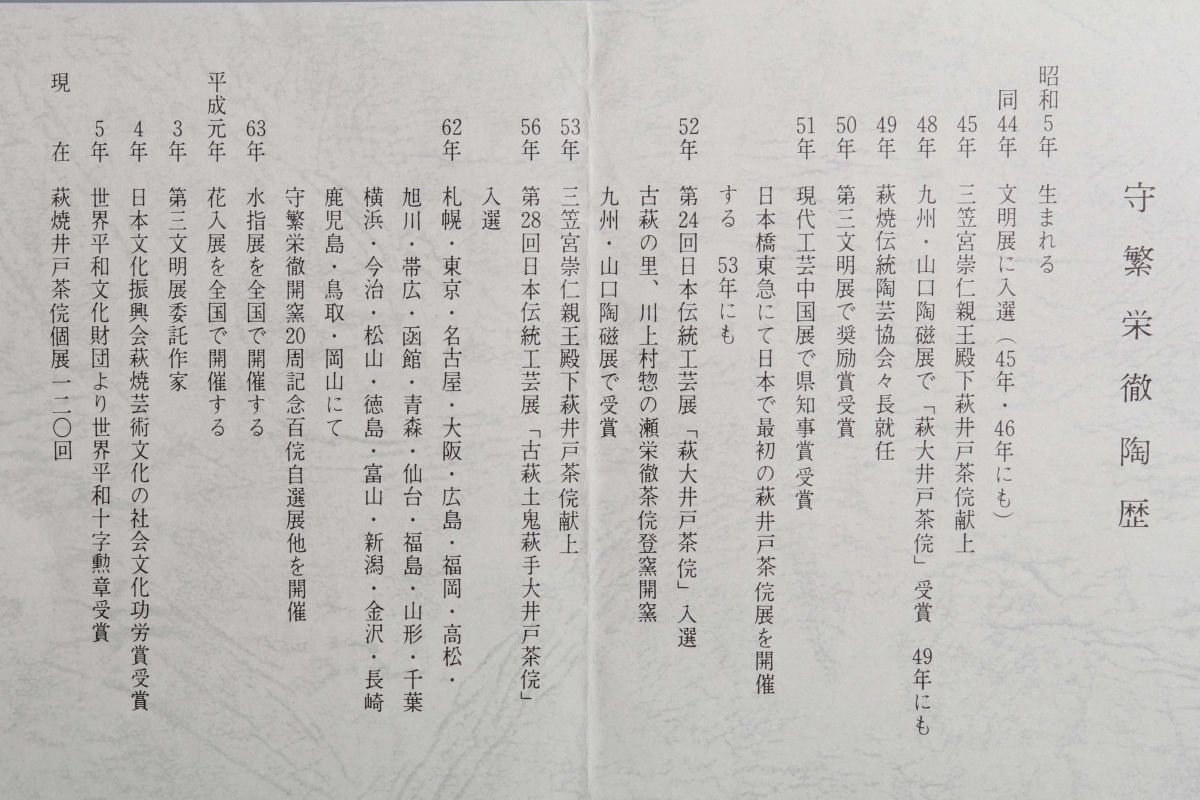 守繁栄徹陶歴
昭和5年 生まれる
同44年 文明展に入選(45年・46年にも)
45年 三笠宮崇仁親王殿下萩井戸茶盌献上
48年 九州・山口陶磁展で「萩大井戸茶盌」受賞 49年にも
49年 萩焼伝統陶芸協会々長就任
50年 第三文明展で奨励賞受賞
51年 現代工芸中国展で県知事賞受賞
日本橋東急にて日本で最初の萩井戸茶盌展を開催
する 53年にも
52年 第24回日本伝統工芸展「萩大井戸茶盌」入選
古萩の里、川上村惣の瀬栄徹茶盌登窯開窯
九州・山口陶磁展で受賞
53年 三笠宮崇仁親王殿下萩井戸茶盌献上
56年 第28回日本伝統工芸展「古萩土鬼萩手大井戸茶盌」
入選
62年 札幌・東京・名古屋・大阪・広島・福岡・高松・
旭川・帯広・函館・青森・仙台・福島・山形・千葉
横浜・今治・松山・徳島・富山・新潟・金沢・長崎
鹿児島・鳥取・岡山にて
守繁栄徹開窯20周記念百盌自選展他を開催
63年 水指展を全国で開催する
平成元年 花入展を全国で開催する
3年 第三文明展委託作家
4年 日本文化振興会萩焼芸術文化の社会文化功労賞受賞
5年 世界平和文化財団より世界平和十字勲章受賞
現在 萩焼井戸茶盌個展一二〇回